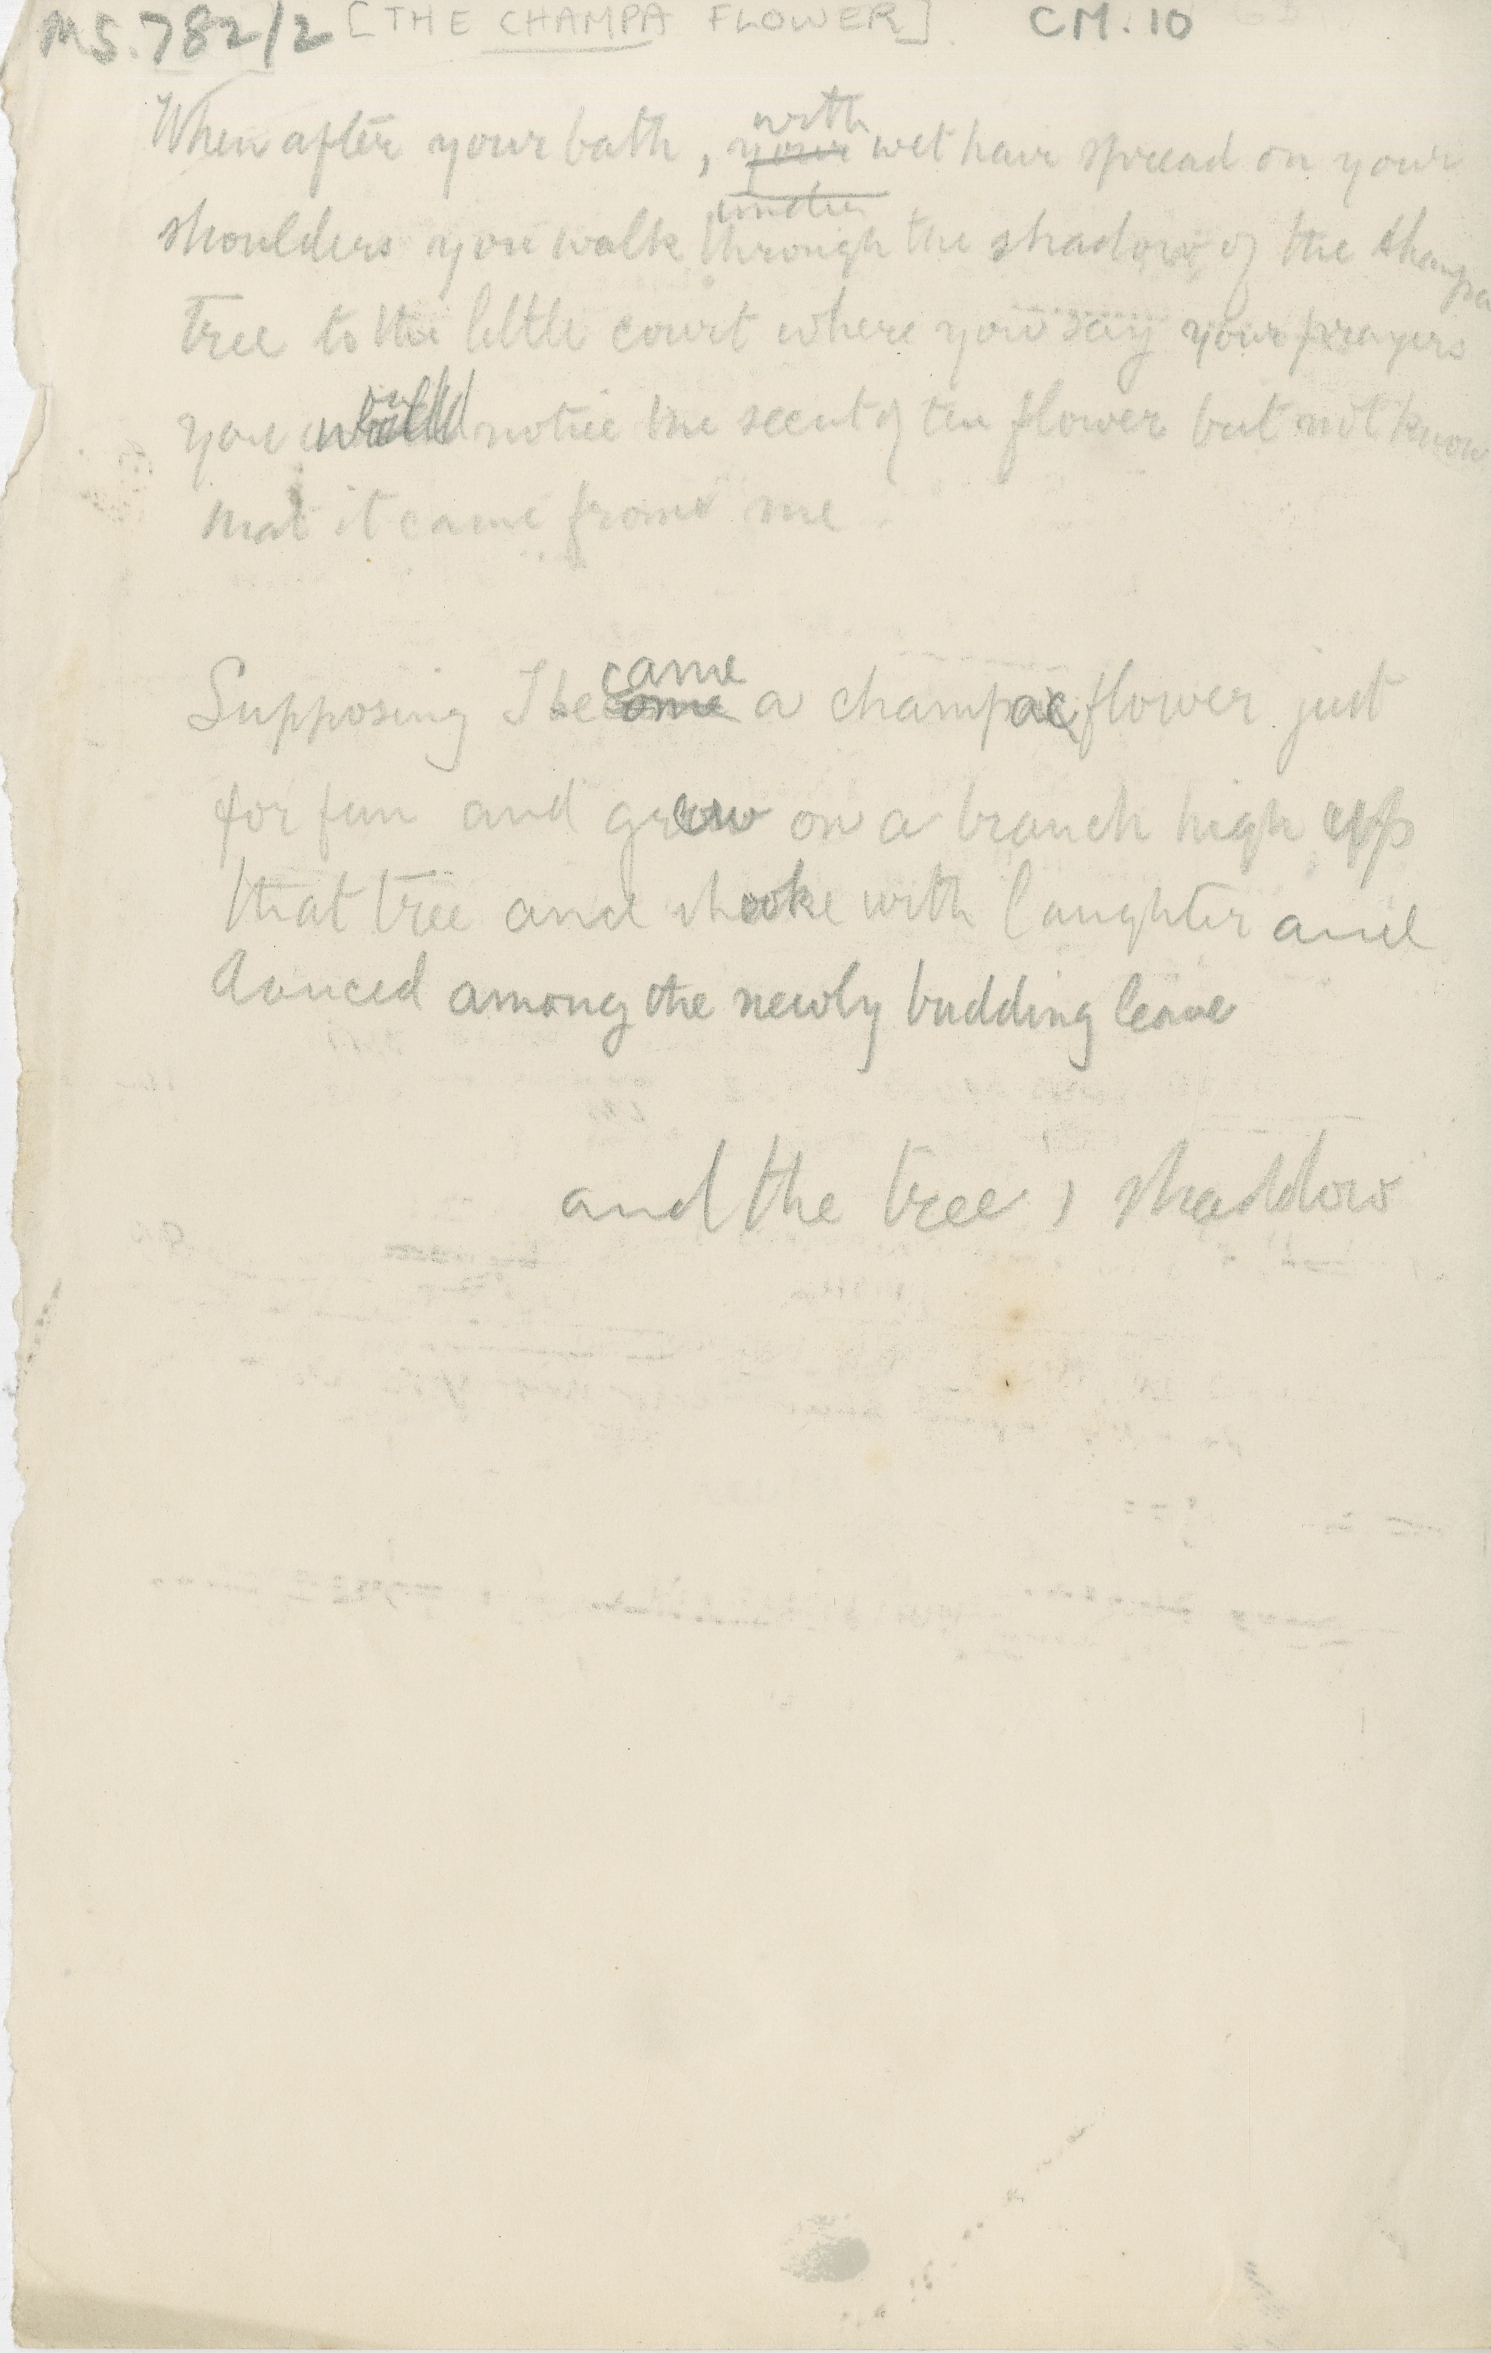 MS. 782/2 [THE CHAMPA FLOWER] CM. 10
with
When after your bath, your wet hair spread on your
under
shoulders you walk through the shadow of the champa
tree to the little court where you say your prayers
you would notice the scent of the flower but not know
that it came from me
came
Supposing I become a champac flower just
for fun and grew on a branch high up
that tree and shooke with laughter and
danced among the newly budding leave
and the tree's shaddow